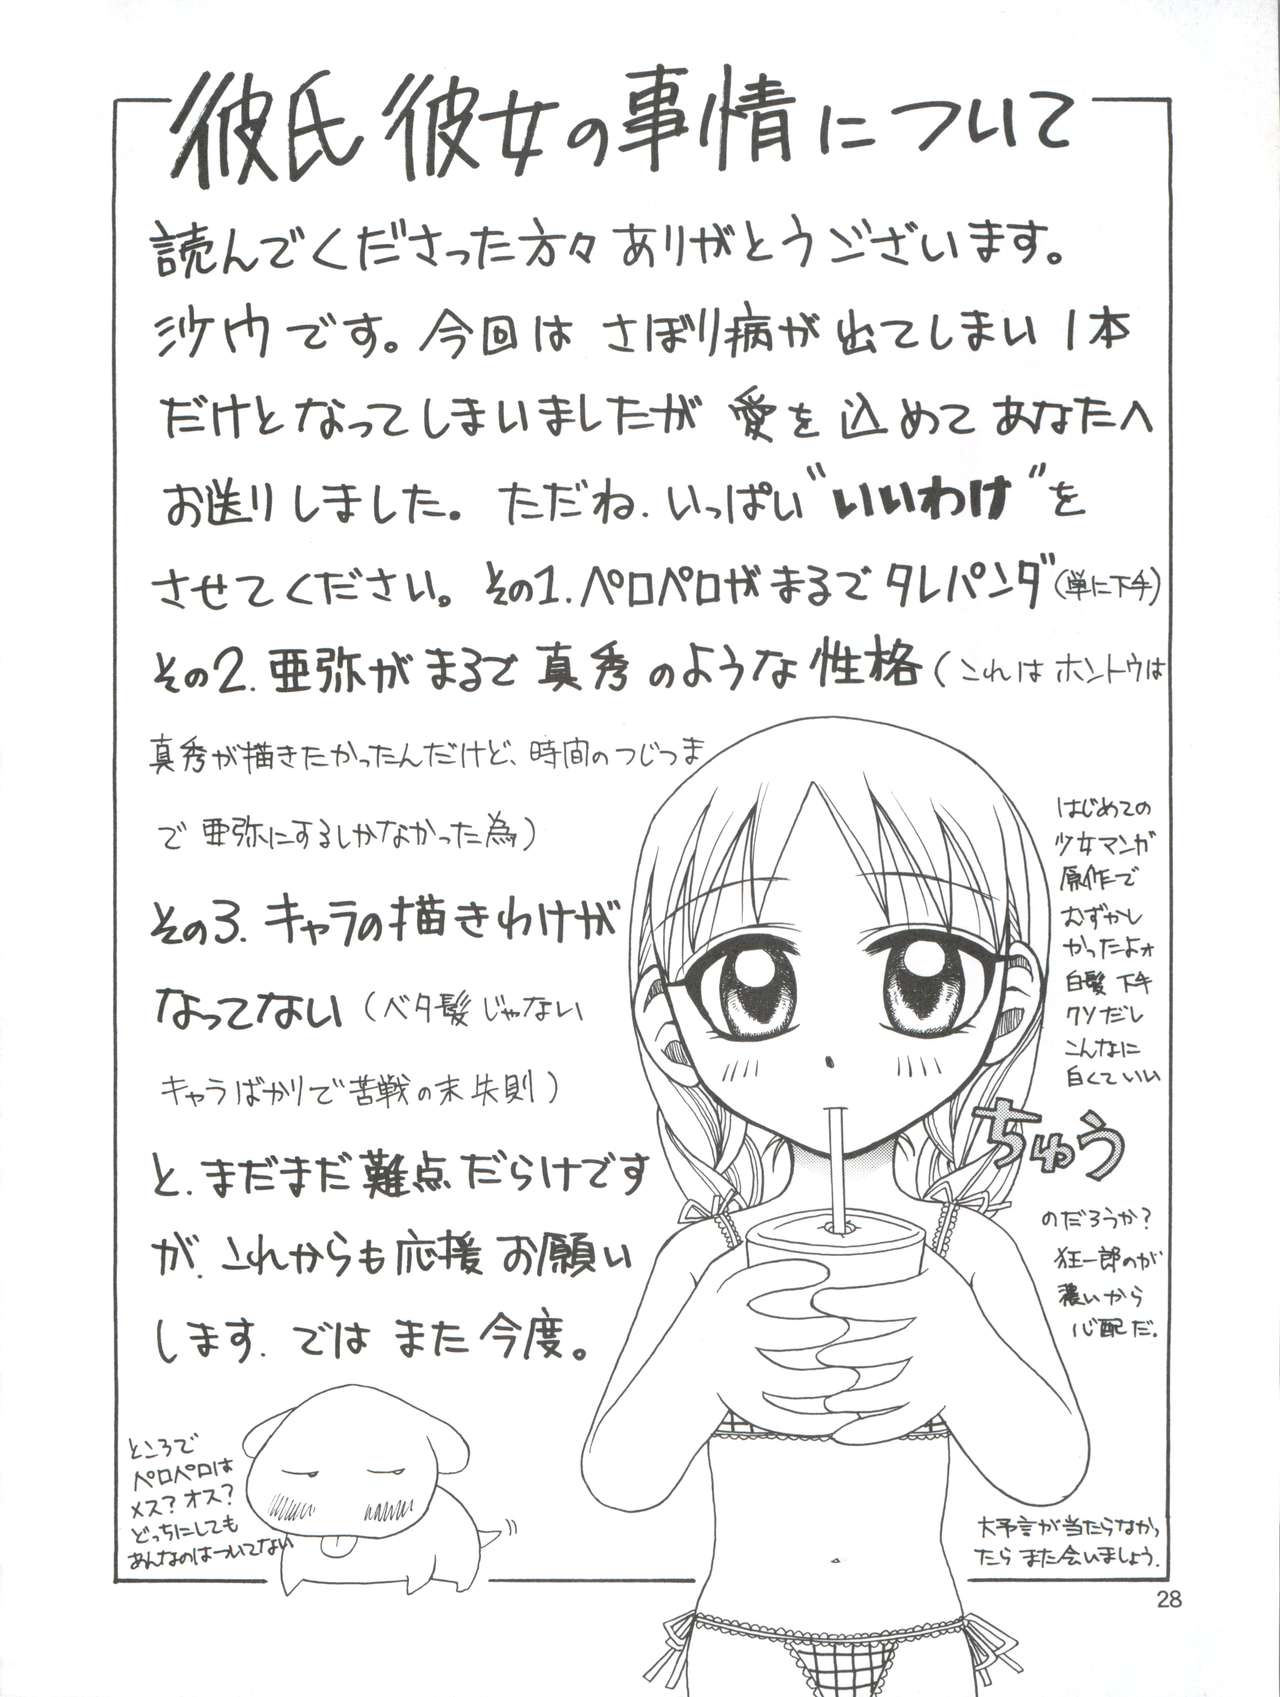 彼氏彼女の事情について
読んでくださった方々ありがとうございます。
沙ケウです。今回は さぼり病が出てしまい1本
だけとなってしまいましたが 愛を込めてあなたへ
お送りしました。ただね.いっぱい“いいわけ”を
させてください。その1.ペロペロがまるでタレパンダ(単に下手)
その2.亜弥がまるで真秀のような性格(これはホントウは
真秀が描きたかったんだけど、時間のつじつま
で 亜弥にするしかなかった為)
その3.キャラの描きわけが
なってない(ベタ髪じゃない
キャラばかりで苦戦の末失則)
と.まだまだ難点だらけです
が.これからも応援お願い
します.では また今度。
はじめての
少女マンガ
原作で
むずかし
かったよォ
白髪下手
クソだし
こんなに
白くていい
ちゅう
のだろうか?
狂一郎のが
濃いから
心配だ.
ところで
ペロペロは
メス?オス?
どっちにしても
あんなのはついてない
大予言が当たらなかっ
たら また会いましょう.
28